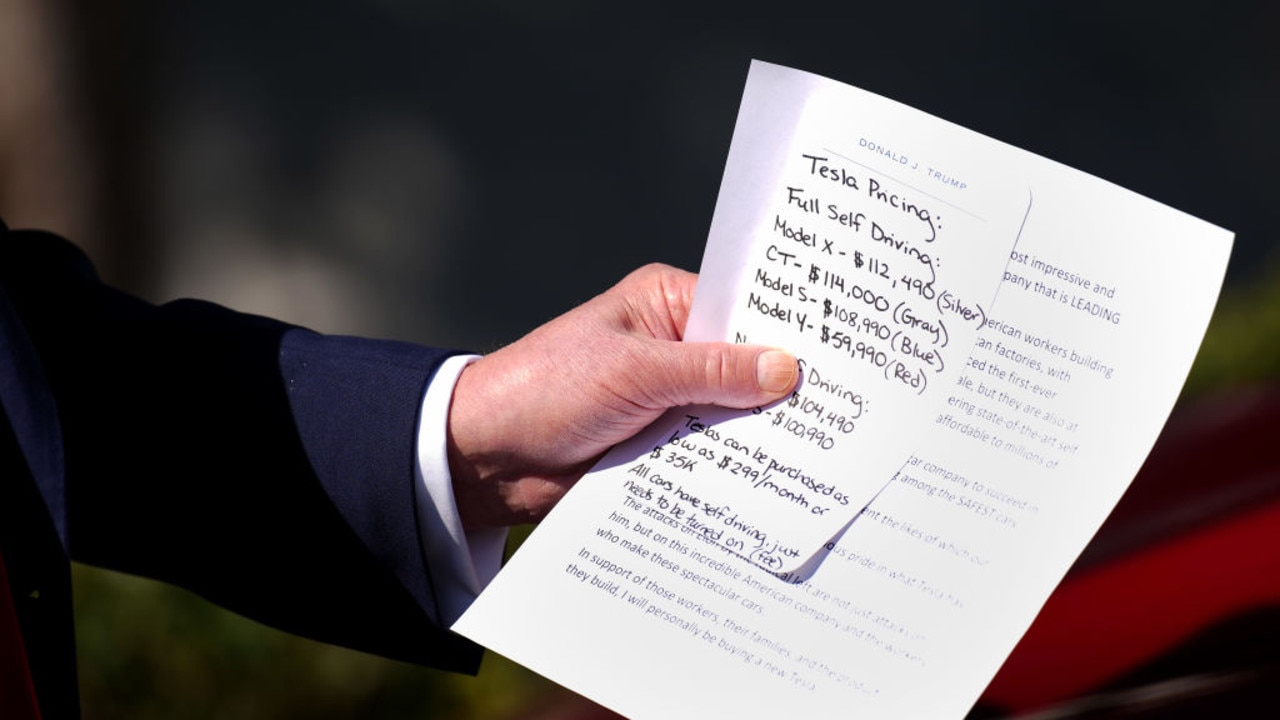 DONALD J. TRUMP
Tesla Pricing:
Full Self Driving:
Model X - $112,490 (Silver)
CT - $114,000 (Gray)
Model S - $108,990 (Blue)
Model Y - $59,990 (Red)
Driving:
$104,490
S - $100,990
Teslas can be purchased as
low as $299/month or
$35K
All cars have self driving, just
needs to be turned on (fee)
ost impressive and
pany that is LEADING
erican workers building
can factories, with
ced the first-ever
ale, but they are also at
ering state-of-the-art self
affordable to millions of
car company to succeed in
among the SAFEST cars
ent the likes of which our
ous pride in what Tesla has
The attacks on Elon by the radical left are not just attacks on
him, but on this incredible American company and the workers
who make these spectacular cars.
In support of those workers, their families, and the product
they build, I will personally be buying a new Tesla